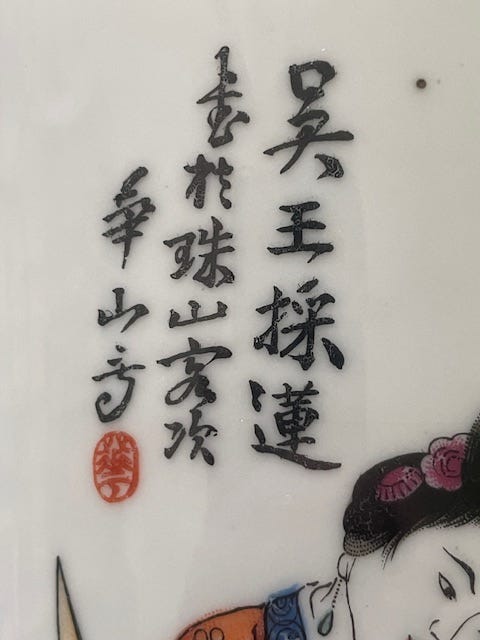 吳王採蓮
畫於珠山客次
華山